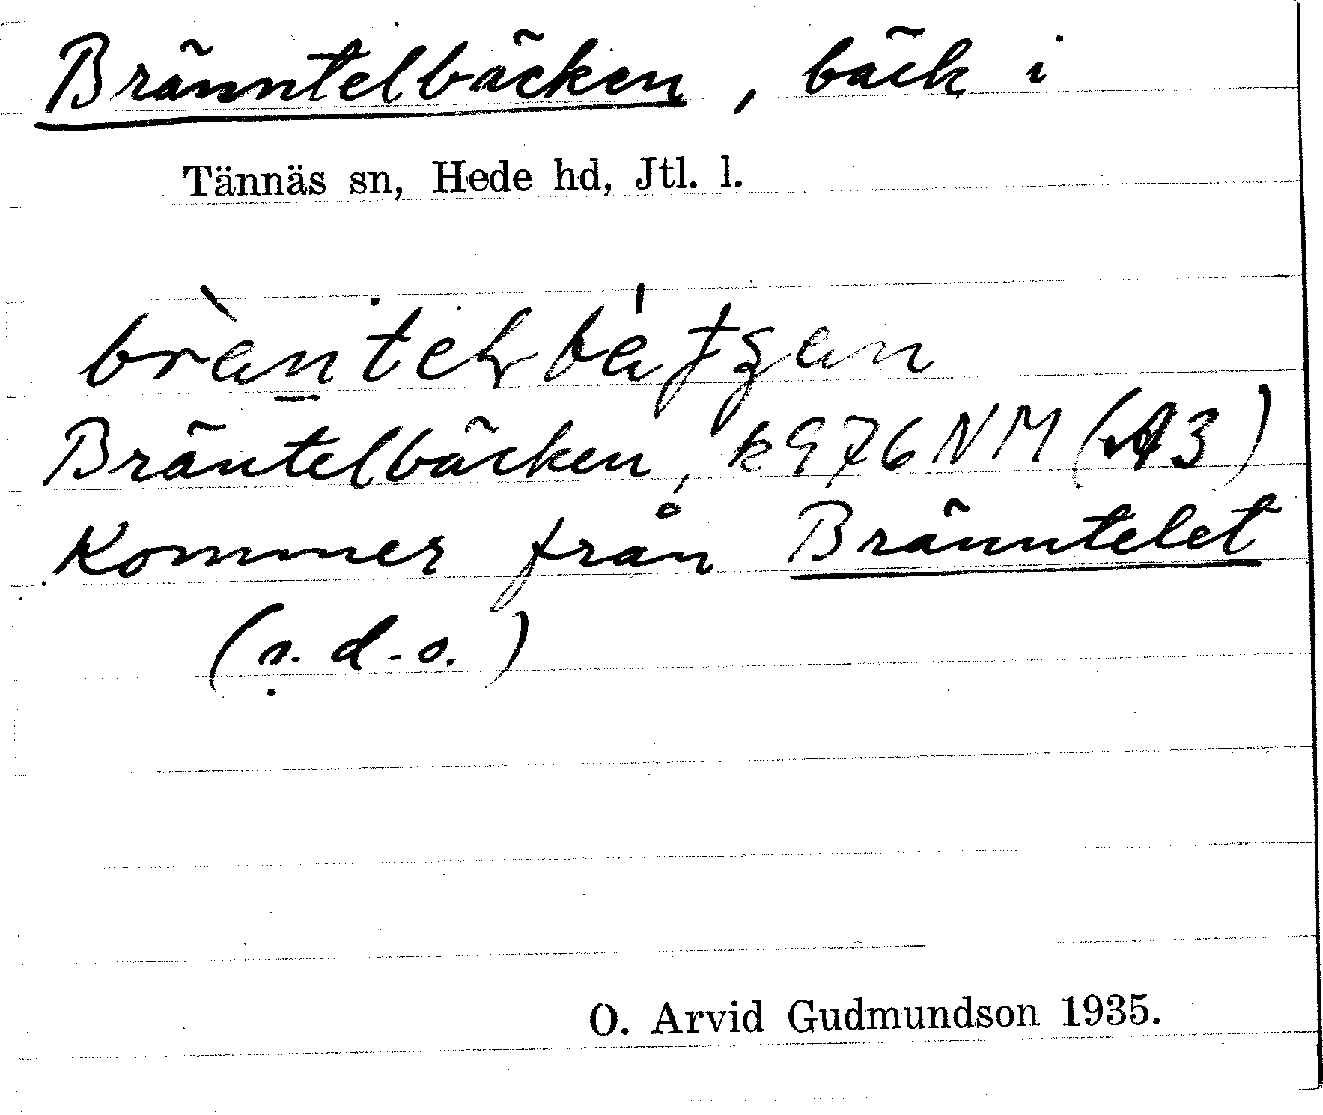 Bränntelbäcken, bäck i
Tännäs sn, Hede hd, Jtl. l.
Bräntelbäcken, k 976 NM (A3)
Kommer från Bränntelet
(s. d. o.)
O. Arvid Gudmundson 1935.